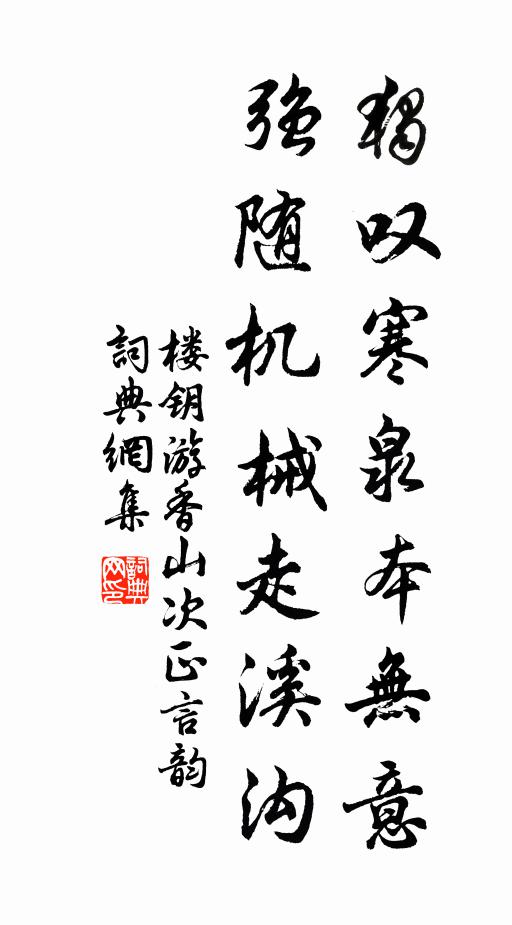 独叹寒泉本無意
强随机械走溪沟
楼钥游香山次正言韵
詞典網集
詞典网印